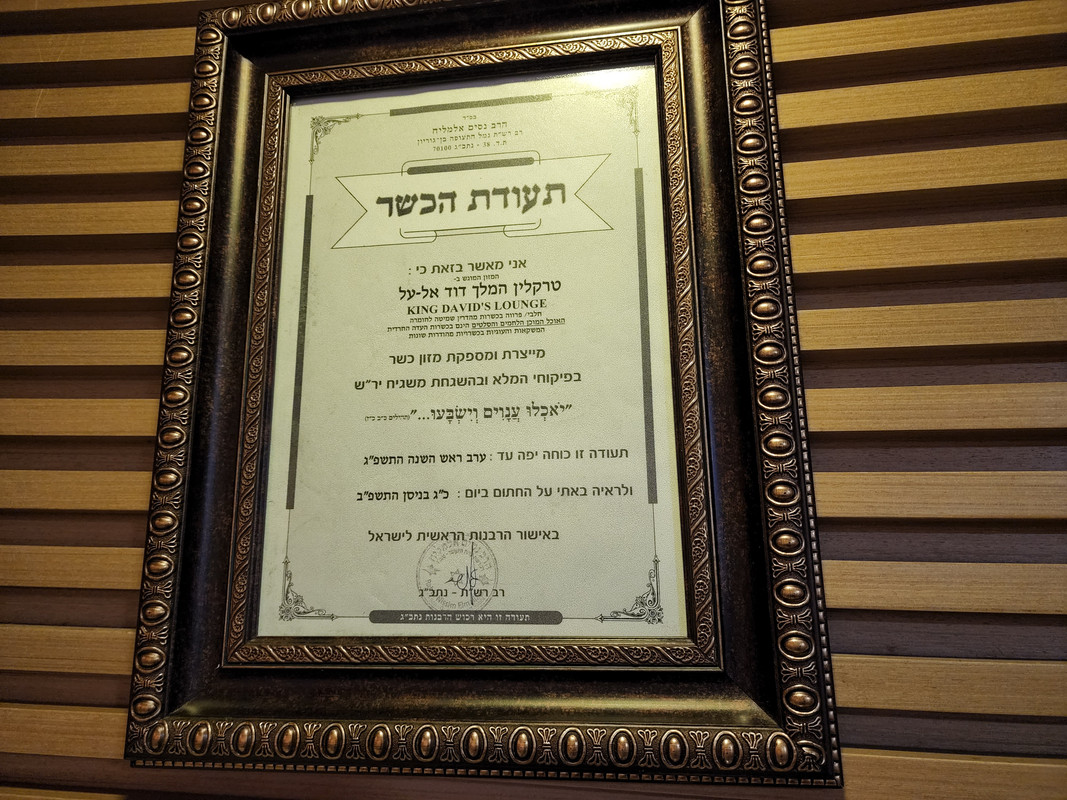 בס"ד
הרב נסים אלמליח
רב רש"ת נמל התעופה בן-גוריון
ת.ד. 38 - נתב"ג 70100
תעודת הכשר
אני מאשר בזאת כי :
המזון המוגש ב-
טרקלין המלך דוד אל-על
KING DAVID'S LOUNGE
חלבי/ פרווה בכשרות מהדרין שמיטה לחומרה
האוכל המוכן הלחמים והסלטים הינם בכשרות העדה החרדית
המשקאות והעוגיות בכשרויות מהודרות שונות
מייצרת ומספקת מזון כשר
בפיקוחי המלא ובהשגחת משגיח יר"ש
"יֹאכְלוּ עֲנָוִים וְיִשְׂבָּעוּ..." (תהילים כ"ב כ"ז)
תעודה זו כוחה יפה עד : ערב ראש השנה התשפ"ג
ולראיה באתי על החתום ביום : כ"ג בניסן התשפ"ב
באישור הרבנות הראשית לישראל
רב רש"ת - נתב"ג
תעודה זו היא רכוש הרבנות נתב"ג